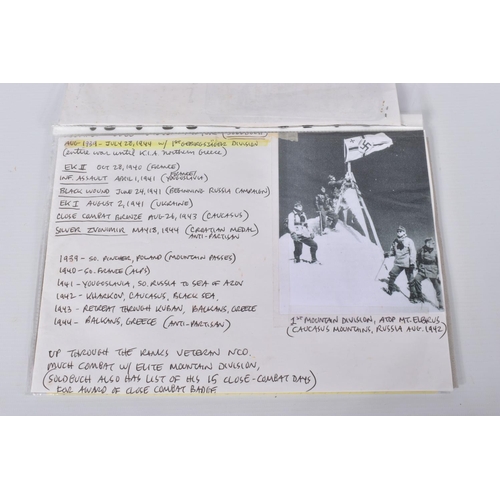 AUG 1939 - JULY 28, 1944 w/ 1ST GEBIRGSJÄGER DIVISION
(entire war until K.I.A. northern Greece)
EK II OCT 28, 1940 (FRANCE)
INF. ASSAULT APRIL 1, 1941 (FRANCE/YOUGOSLAVIA)
BLACK WOUND JUNE 24, 1941 (BEGINNING RUSSIA CAMPAIGN)
EK I AUGUST 2, 1941 (UKRAINE)
CLOSE COMBAT BRONZE AUG 26, 1943 (CAUCASUS)
SILVER ZVONIMIR MAY 18, 1944 (CROATIAN MEDAL)
ANTI-PARTISAN
1939 - SO. PINCHER, POLAND (MOUNTAIN PASSES)
1940 - SO. FRANCE (ALPS)
1941 - YOUGOSLAVIA, SO. RUSSIA TO SEA OF AZOV
1942 - KHARKOV, CAUCASUS, BLACK SEA,
1943 - RETREAT THROUGH KUBAN, BALKANS, GREECE
1944 - BALKANS, GREECE (ANTI-PARTISAN)
UP THROUGH THE RANKS VETERAN NCO.
MUCH COMBAT w/ ELITE MOUNTAIN DIVISION,
(SOLDBUCH ALSO HAS LIST OF HIS 15 CLOSE-COMBAT DAYS)
FOR AWARD OF CLOSE COMBAT BADGE
1ST MOUNTAIN DIVISION, ATOP MT. ELBRUS
(CAUCASUS MOUNTAINS, RUSSIA AUG. 1942)